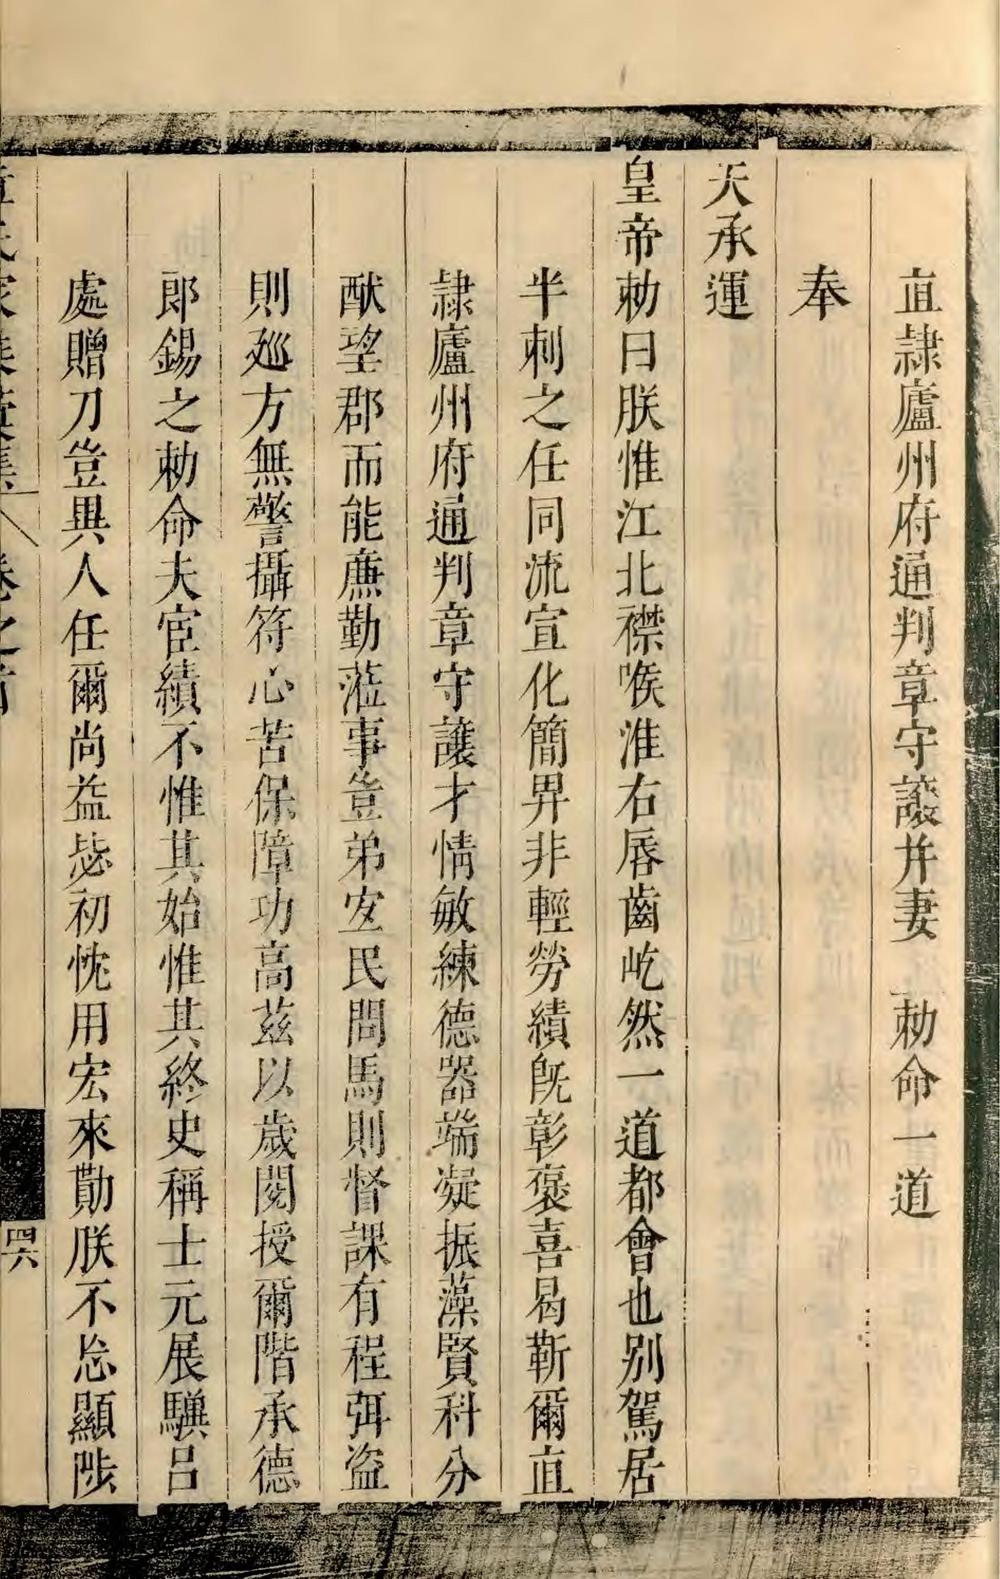 直隸廬州府通判章守讓并妻　勅命一道
奉
天承運
皇帝勅曰朕惟江北襟喉淮右唇齒屹然一道都會也别駕居
半刺之任同流宣化簡畀非輕勞績旣彰褒喜曷靳爾直
隸廬州府通判章守讓才情敏練德器端凝振藻賢科分
猷望郡而能亷勤蒞事豈弟安民問馬則督課有程弭盗
則廵方無警攝符心苦保障功高茲以歲閱授爾階承德
郎錫之勅命夫宦績不惟其始惟其終史稱士元展驥吕
處贈刀豈異人任爾尚益毖初忱用宏來勩朕不忘顯陟
卷之首
四六